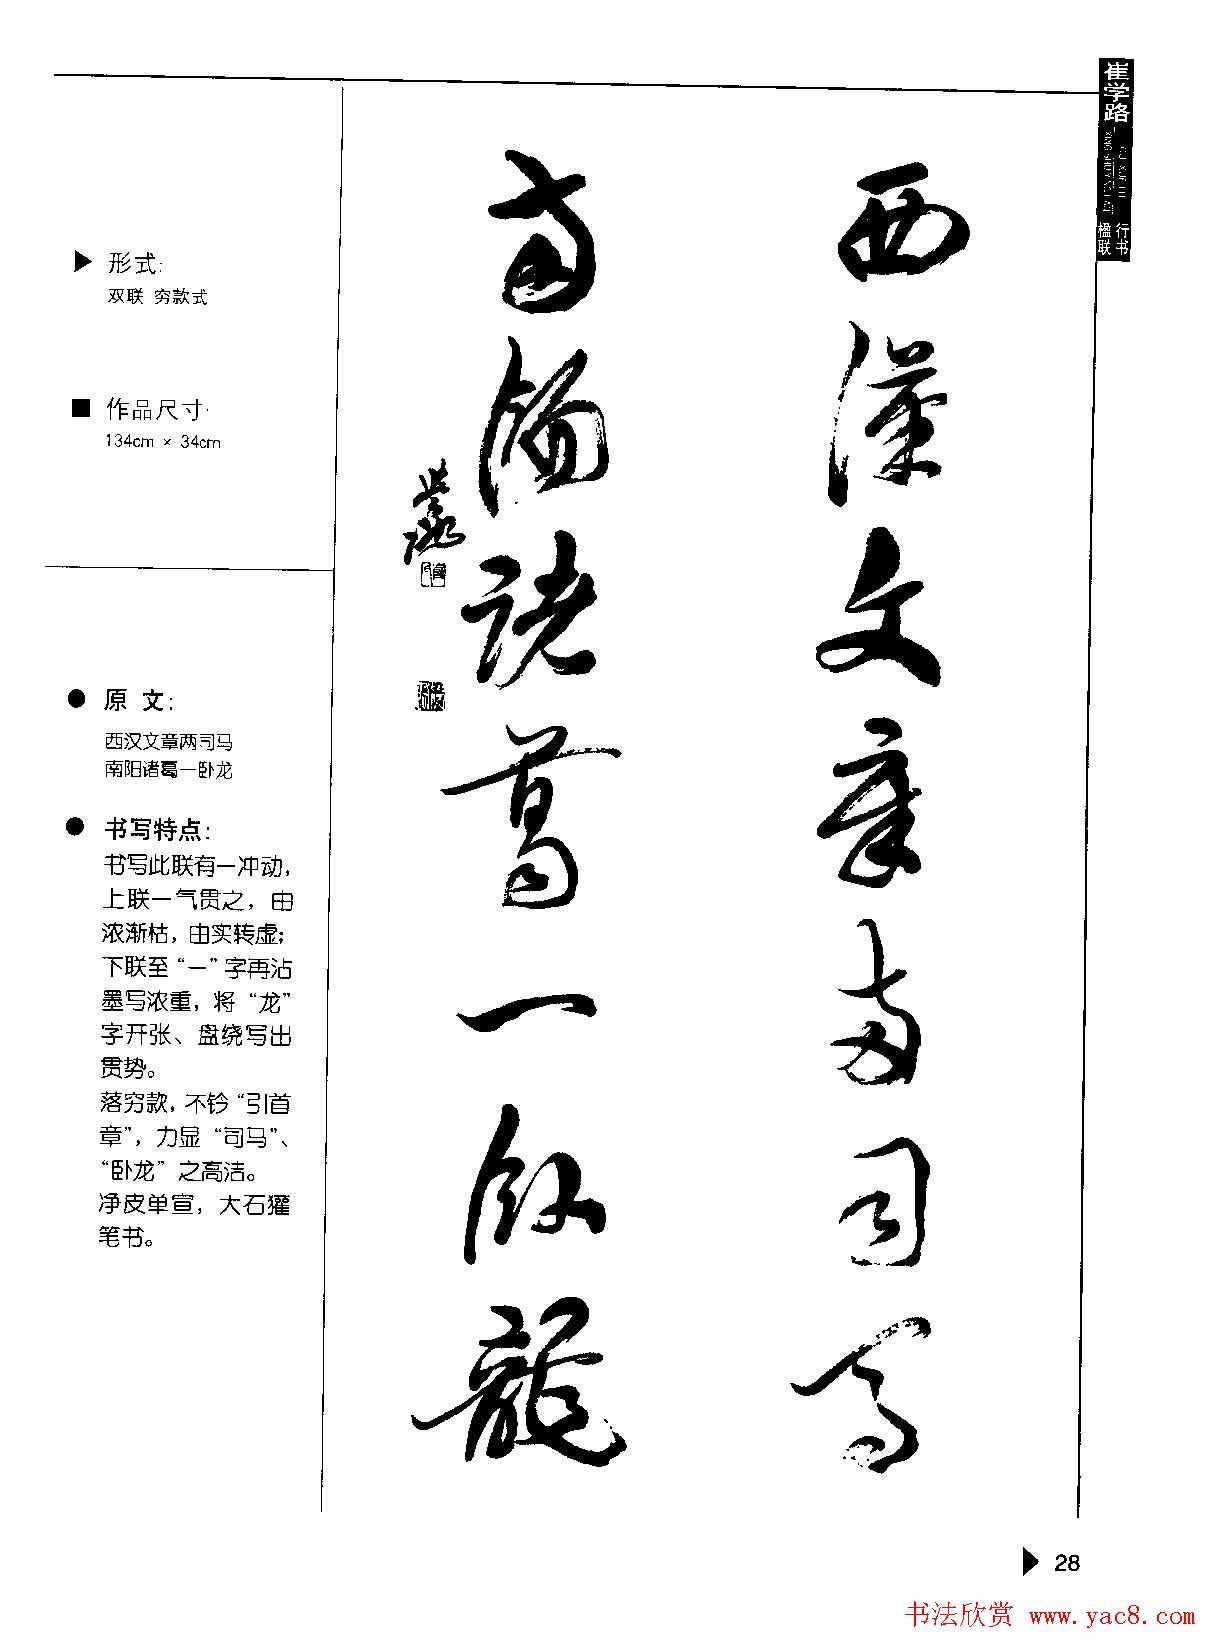 崔学路
行书
楹联
西漢文章两司馬
南陽諸葛一卧龍
形式:
双联 穷款式
作品尺寸:
134cm × 34cm
原 文:
西汉文章两司马
南阳诸葛一卧龙
书写特点:
书写此联有一冲动,
上联一气贯之, 由
浓渐枯, 由实转虚;
下联至“一”字再沾
墨写浓重, 将“龙”
字开张、盘绕写出
贯势。
落穷款, 不钤“引首
章”, 力显“司马”、
“卧龙”之高洁。
净皮单宣, 大石獾
笔书。
28
书法欣赏 www.yac8.com